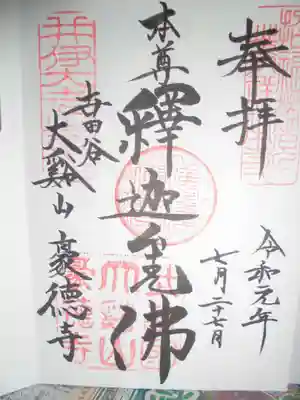 奉拝
令和元年
七月二十七日
本尊
釋迦牟尼佛
世田谷
大谿山
豪德寺